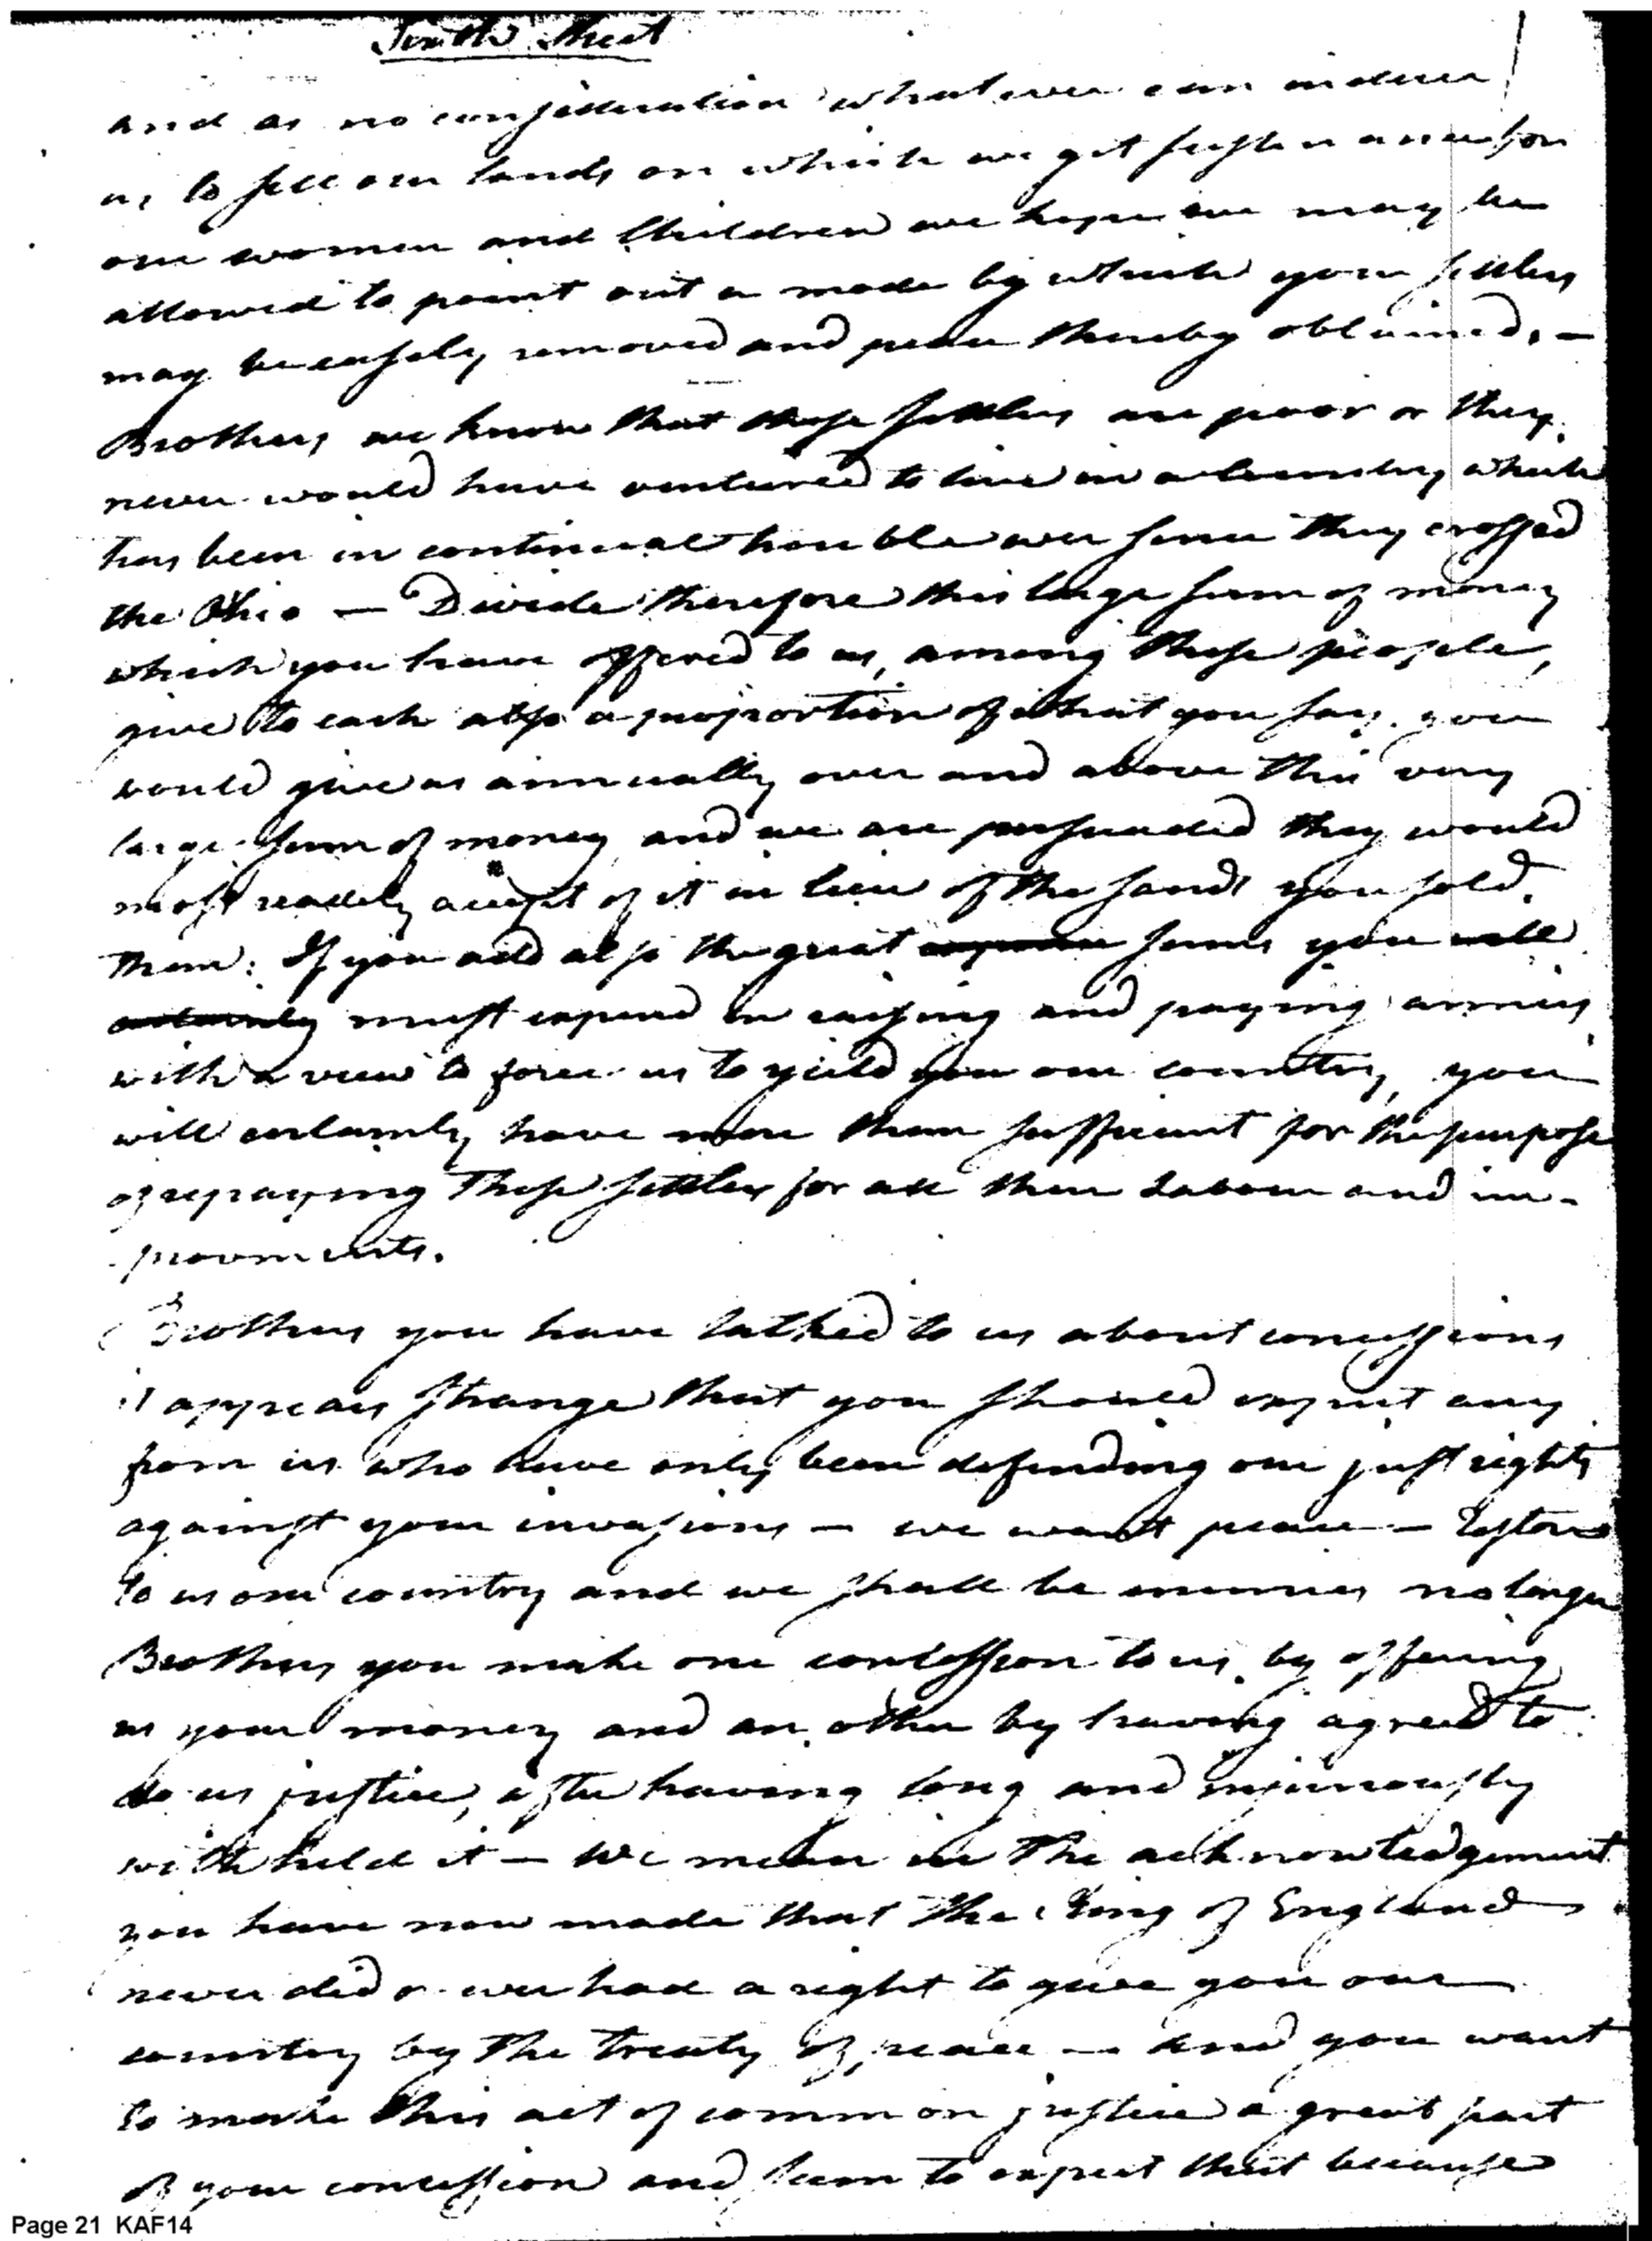 Tenth Sheet
and as no consideration whatever can induce
us to sell our lands on which we get sustenance for
our women and Children we hope we may be
allowed to point out a mode by which your settlers
may be easely removed and peace thereby obtained. —
Brothers, we know that these settlers are poor or they
never would have ventured to live in a Country which
has been in continual trouble ever since they crossed
the Ohio — Divide therefore this large sum of money
which you have offered to us, among these people,
give to each also a proportion of what you say you
would give us annually over and above this very
large sum of money and we are persuaded they would
most readely accept of it in lieu of the lands you sold
them: If you add also the great sums you will
certainly must expend in raising and paying armies
with a view to force us to yield you our country, you
will certainly have more than sufficient for the purpose
of repaying these settlers for all their labour and im-
provments.
Brothers you have talked to us about concessions
it appears strange that you should expect any
from us who have only been defending our just rights
against your invasions — we want peace — Restore
to us our country and we shall be enemies no longer
Brothers you make one concession to us by offering
us your money and an other by having agreed to
do us justice, after having long and injuriously
withheld it — We mean in the acknowledgement
you have now made that the King of England
never did or ever had a right to give you our
country by the treaty of peace — And you want
to make this act of common justice a great part
of your concession and seem to expect that because
Page 21 KAF14